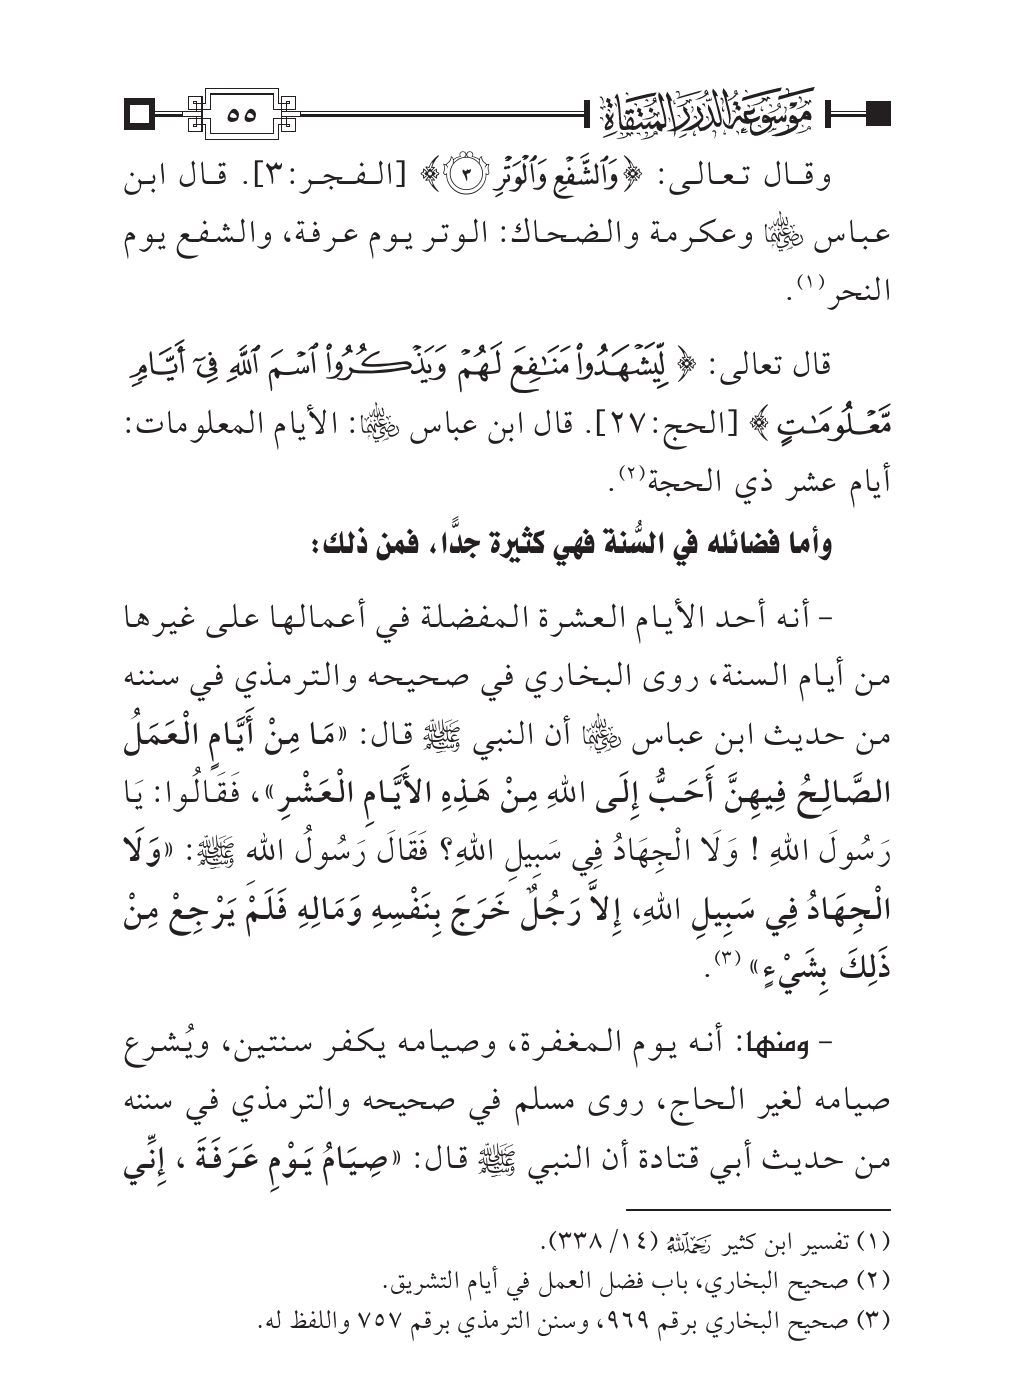 مَوْسُوعَةُ الدُّرَرِ المُنْتَقَاةِ ٥٥
وقال تعالى: ﴿وَٱلشَّفۡعِ وَٱلۡوَتۡرِ ٣﴾ [الفجر:٣]. قال ابن
عباس ﵄ وعكرمة والضحاك: الوتر يوم عرفة، والشفع يوم
النحر(١).
قال تعالى: ﴿لِّيَشۡهَدُواْ مَنَٰفِعَ لَهُمۡ وَيَذۡكُرُواْ ٱسۡمَ ٱللَّهِ فِيٓ أَيَّامٖ
مَّعۡلُومَٰتٍ﴾ [الحج:٢٧]. قال ابن عباس ﵄: الأيام المعلومات:
أيام عشر ذي الحجة(٢).
وأما فضائله في السُّنة فهي كثيرة جدًّا، فمن ذلك:
– أنه أحد الأيام العشرة المفضلة في أعمالها على غيرها
من أيام السنة، روى البخاري في صحيحه والترمذي في سننه
من حديث ابن عباس ﵄ أن النبي ﷺ قال: «مَا مِنْ أَيَّامٍ الْعَمَلُ
الصَّالِحُ فِيهِنَّ أَحَبُّ إِلَى اللهِ مِنْ هَذِهِ الأَيَّامِ الْعَشْرِ»، فَقَالُوا: يَا
رَسُولَ اللهِ ! وَلَا الْجِهَادُ فِي سَبِيلِ اللهِ؟ فَقَالَ رَسُولُ اللهِ ﷺ: «وَلَا
الْجِهَادُ فِي سَبِيلِ اللهِ، إِلاَّ رَجُلٌ خَرَجَ بِنَفْسِهِ وَمَالِهِ فَلَمْ يَرْجِعْ مِنْ
ذَلِكَ بِشَيْءٍ»(٣).
– ومنها: أنه يوم المغفرة، وصيامه يكفر سنتين، ويُشرع
صيامه لغير الحاج، روى مسلم في صحيحه والترمذي في سننه
من حديث أبي قتادة أن النبي ﷺ قال: «صِيَامُ يَوْمِ عَرَفَةَ ، إِنِّي
(١) تفسير ابن كثير ﵀ (١٤/ ٣٣٨).
(٢) صحيح البخاري، باب فضل العمل في أيام التشريق.
(٣) صحيح البخاري برقم ٩٦٩، وسنن الترمذي برقم ٧٥٧ واللفظ له.